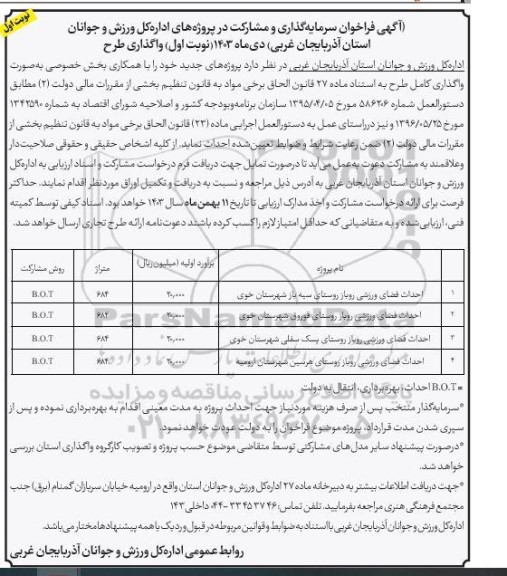 نوبت اول
(آگهی فراخوان سرمایه‌گذاری و مشارکت در پروژه‌های اداره‌کل ورزش و جوانان
استان آذربایجان غربی) دی‌ماه ۱۴۰۳(نوبت اول) واگذاری طرح
اداره‌کل ورزش و جوانان استان آذربایجان غربی در نظر دارد پروژه‌های جدید خود را با همکاری بخش خصوصی به‌صورت
واگذاری کامل طرح به استناد ماده ۲۷ قانون الحاق برخی مواد به قانون تنظیم بخشی از مقررات مالی دولت (۲) مطابق
دستورالعمل شماره ۵۸۶۲۰۶ مورخ ۱۳۹۵/۰۴/۰۵ سازمان برنامه‌وبودجه کشور و اصلاحیه شورای اقتصاد به شماره ۱۳۴۲۵۹۰
مورخ ۱۳۹۶/۰۵/۲۵ و نیز در راستای عمل به دستورالعمل اجرایی ماده (۲۳) قانون الحاق برخی مواد به قانون تنظیم بخشی از
مقررات مالی دولت (۲) ضمن رعایت شرایط و ضوابط تعیین‌شده احداث نماید. از کلیه اشخاص حقیقی و حقوقی صلاحیت‌دار
وعلاقمند به مشارکت دعوت به‌عمل می‌آید تا درصورت تمایل جهت دریافت فرم درخواست مشارکت و اسناد ارزیابی به اداره‌کل
ورزش و جوانان استان آذربایجان غربی به آدرس ذیل مراجعه و نسبت به دریافت و تکمیل اوراق موردنظر اقدام نمایند. حداکثر
فرصت برای ارائه درخواست مشارکت و اخذ مدارک ارزیابی تا تاریخ ۱۱ بهمن‌ماه سال ۱۴۰۳ خواهد بود. اسناد کیفی توسط کمیته
فنی، ارزیابی شده و به متقاضیانی که حداقل امتیاز لازم را کسب کرده باشند دعوت‌نامه ارائه طرح تجاری ارسال خواهد شد.
نام پروژه برآورد اولیه (میلیون ریال) متراژ روش مشارکت
۱ احداث فضای ورزشی روباز روستای سیه باز شهرستان خوی ۲۰،۰۰۰ ۶۸۴ B.O.T
۲ احداث فضای ورزشی روباز روستای قوروق شهرستان خوی ۲۰،۰۰۰ ۶۸۴ B.O.T
۳ احداث فضای ورزشی روباز روستای پسک سفلی شهرستان خوی ۲۰،۰۰۰ ۶۸۴ B.O.T
۴ احداث فضای ورزشی روباز روستای هرسین شهرستان ارومیه ۲۰،۰۰۰ ۶۸۴ B.O.T
=B.O.T احداث، بهره‌برداری، انتقال به دولت
*سرمایه‌گذار منتخب پس از صرف هزینه موردنیاز جهت احداث پروژه به مدت معینی اقدام به بهره‌برداری نموده و پس از
سپری شدن مدت قرارداد، پروژه موضوع فراخوان را به دولت عودت خواهد نمود.
*درصورت پیشنهاد سایر مدل‌های مشارکتی توسط متقاضی موضوع حسب پروژه و تصویب کارگروه واگذاری استان بررسی
خواهد شد.
*جهت دریافت اطلاعات بیشتر به دبیرخانه ماده ۲۷ اداره‌کل ورزش و جوانان استان واقع در ارومیه خیابان سربازان گمنام (برق) جنب
مجتمع فرهنگی هنری مراجعه بفرمایید. تلفن تماس: ۴۶ ۳۷ ۴۵ ۳۳-۰۴۴ داخلی ۱۴۳
اداره‌کل ورزش و جوانان آذربایجان غربی با استناد به ضوابط و قوانین مربوطه در قبول و ردیک یا همه پیشنهادها مختار می‌باشد.
روابط عمومی اداره‌کل ورزش و جوانان آذربایجان غربی